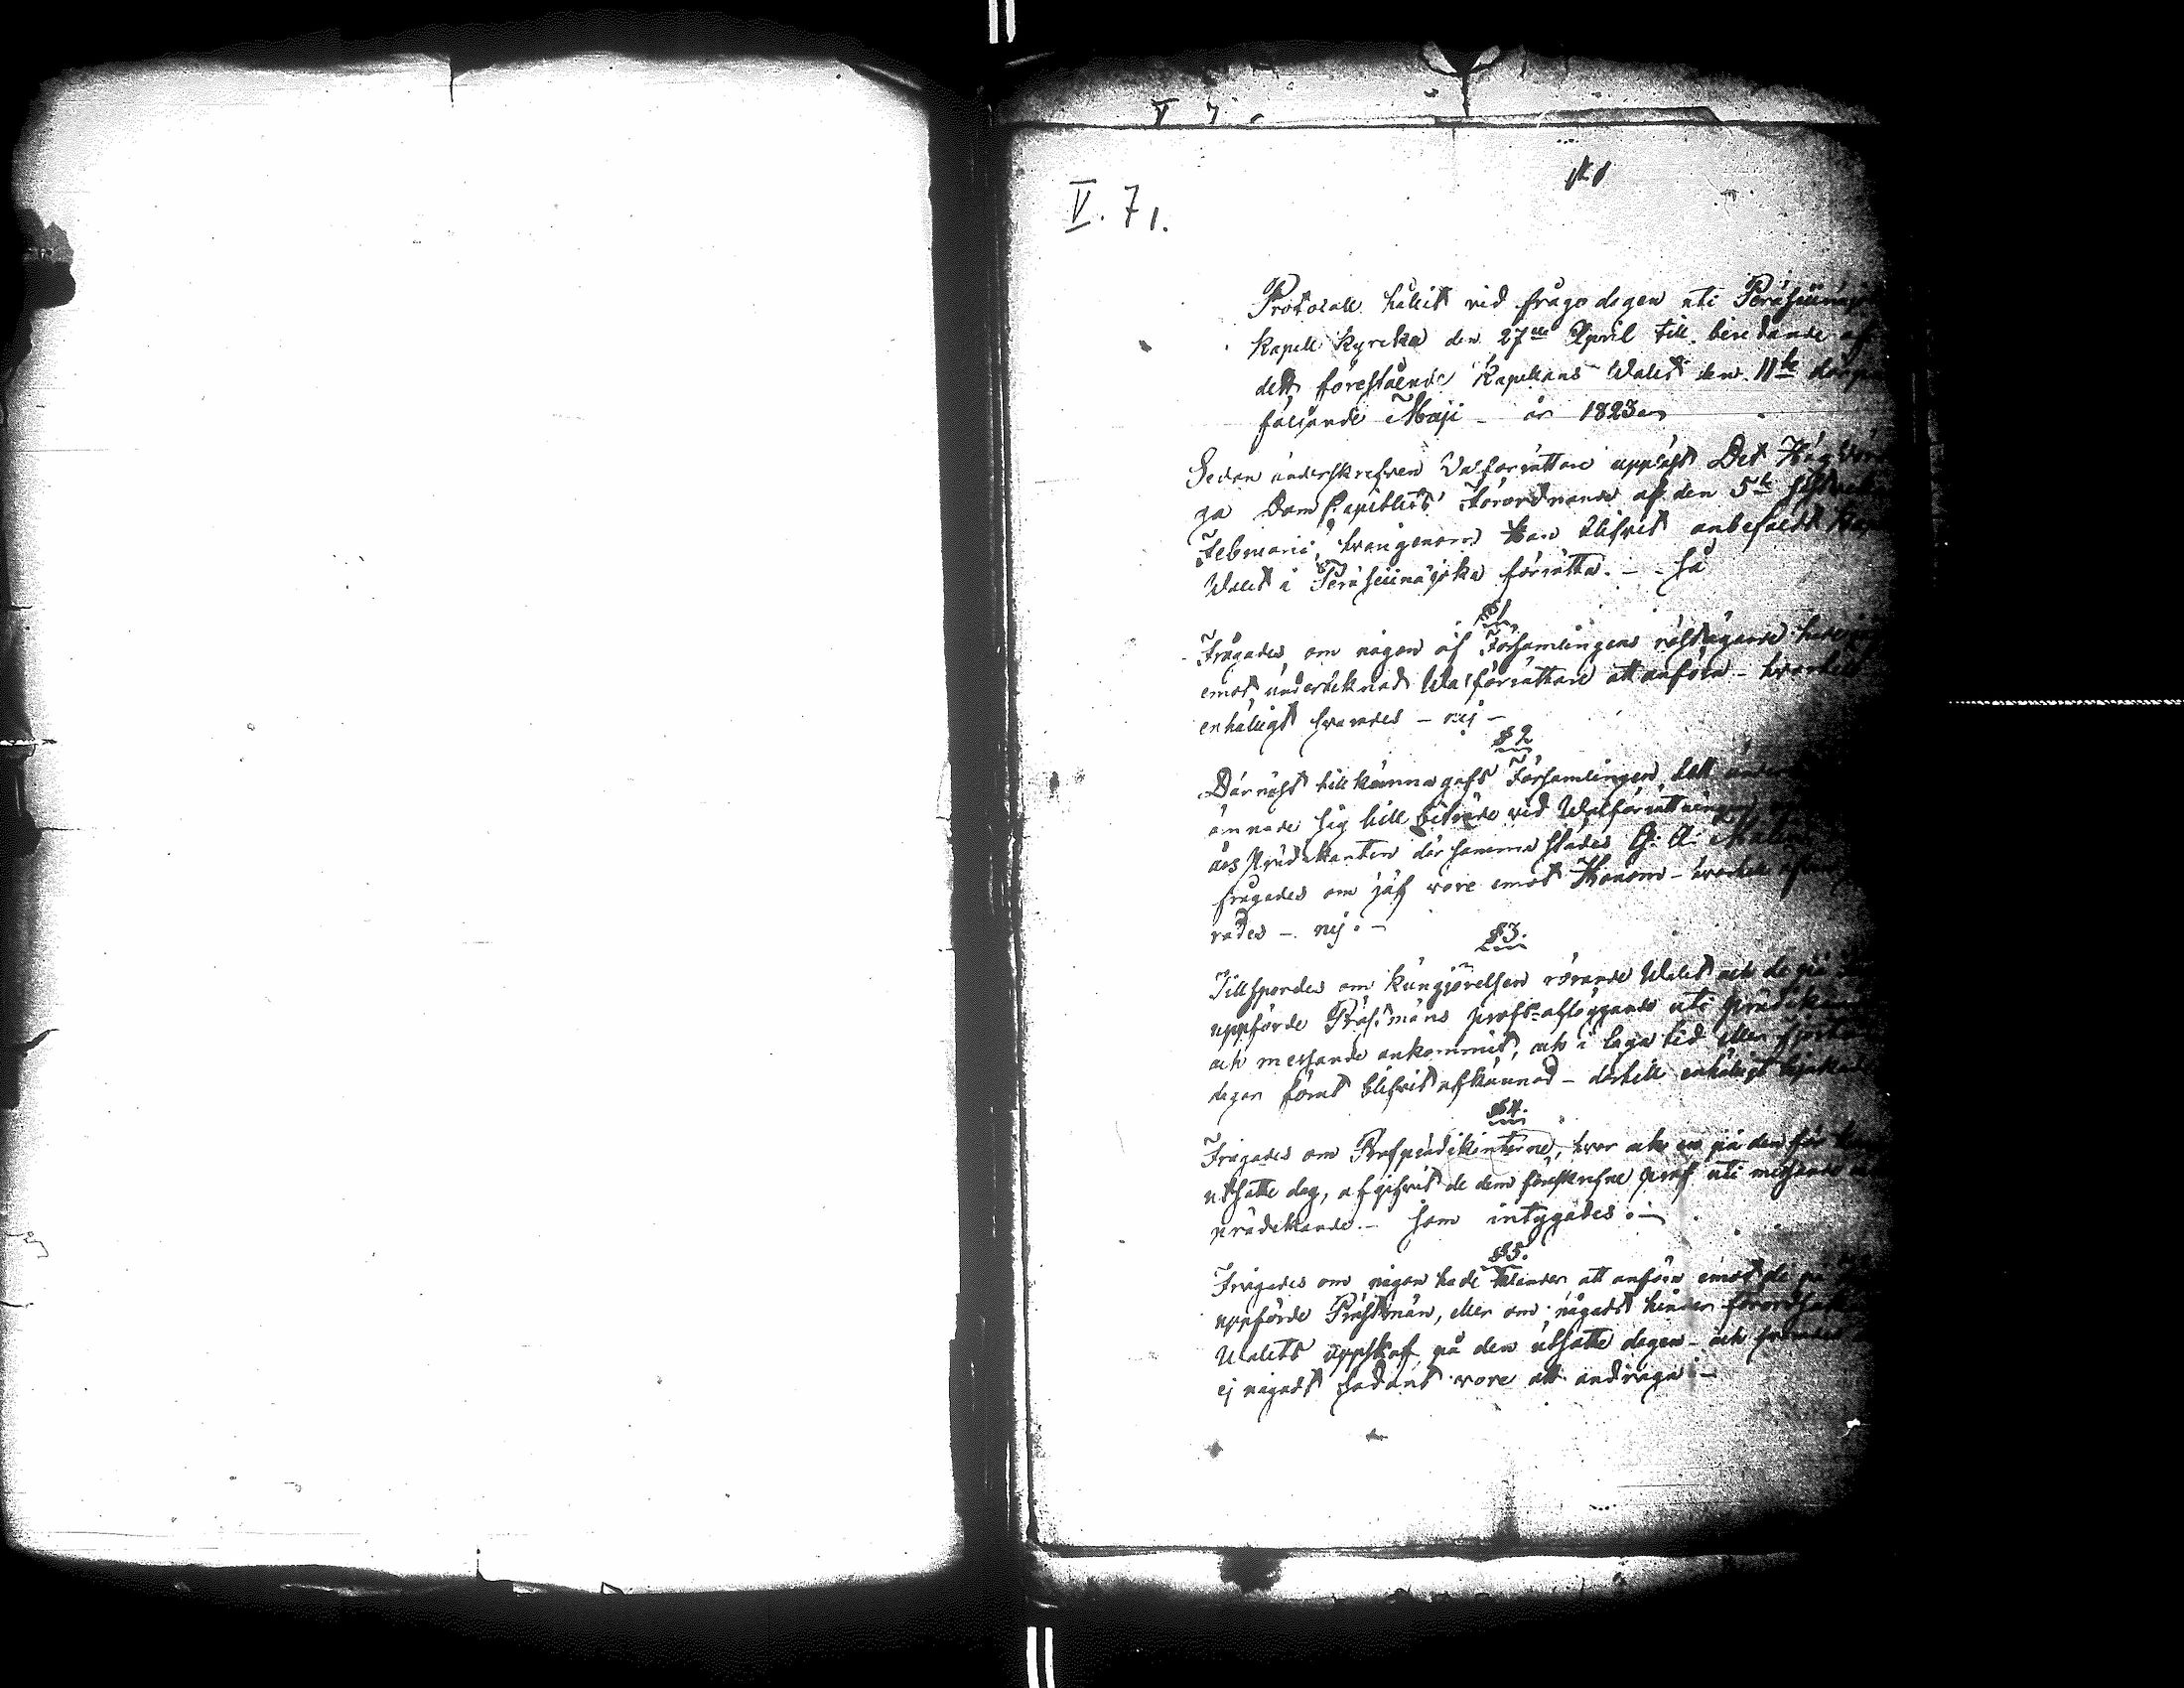 V 7
V. 71.
Protocoll hållit vid frågodagen uti Peräseinäjo
Kapell kyrcka den 27de April till beredande af
dett förestående Kapellans Walet den 11te därpå
följande Maji - år 1823
Sedan underskrefven Walförrättare uppläst Det Högvör
ga Dom Capitlets Förordnande af den 5te sistvikne
Februarii, hvarigenom Han blifvit anbefald Kap
Walet i Peräseinäjoka förrätta. - - Så
§ 1.
Frågades om någon af Församlingens röstägande hade
emot undertecknad Walförrättare att anföra - hvartill
enhäligt svarades - nej -
§ 2
Därnäst tillkännagafs Församlingen, att under
ämnade sig till biträde vid Walförrättningen
års Prädikanten där sammastädes G. A. Malm
frågades om jäf vore emot Honom - hvartill
rades - nej. -
§ 3.
Tillspordes om kungjörelsen rörande Walet och de på
uppförde Prästmäns profs-afläggande uti prädikand
och messande ankommit, och i laga tid eller fjorton
dagar förut blifvit afkunnad - dertill enhäligt
§ 4.
Frågades om Profpredikanterne, hvar och en på den för
utsatte dag, afgifvit de dem föreskrifne prof uti messande
prädikande. - som intygades. -
§ 5.
Frågades om någon hade klander att anföra emot de på
uppförde Prästmän, eller om någodt hinder förordsakade
Walets uppskof på den utsatte dagen - och
ej någodt sådant vore att andraga. -